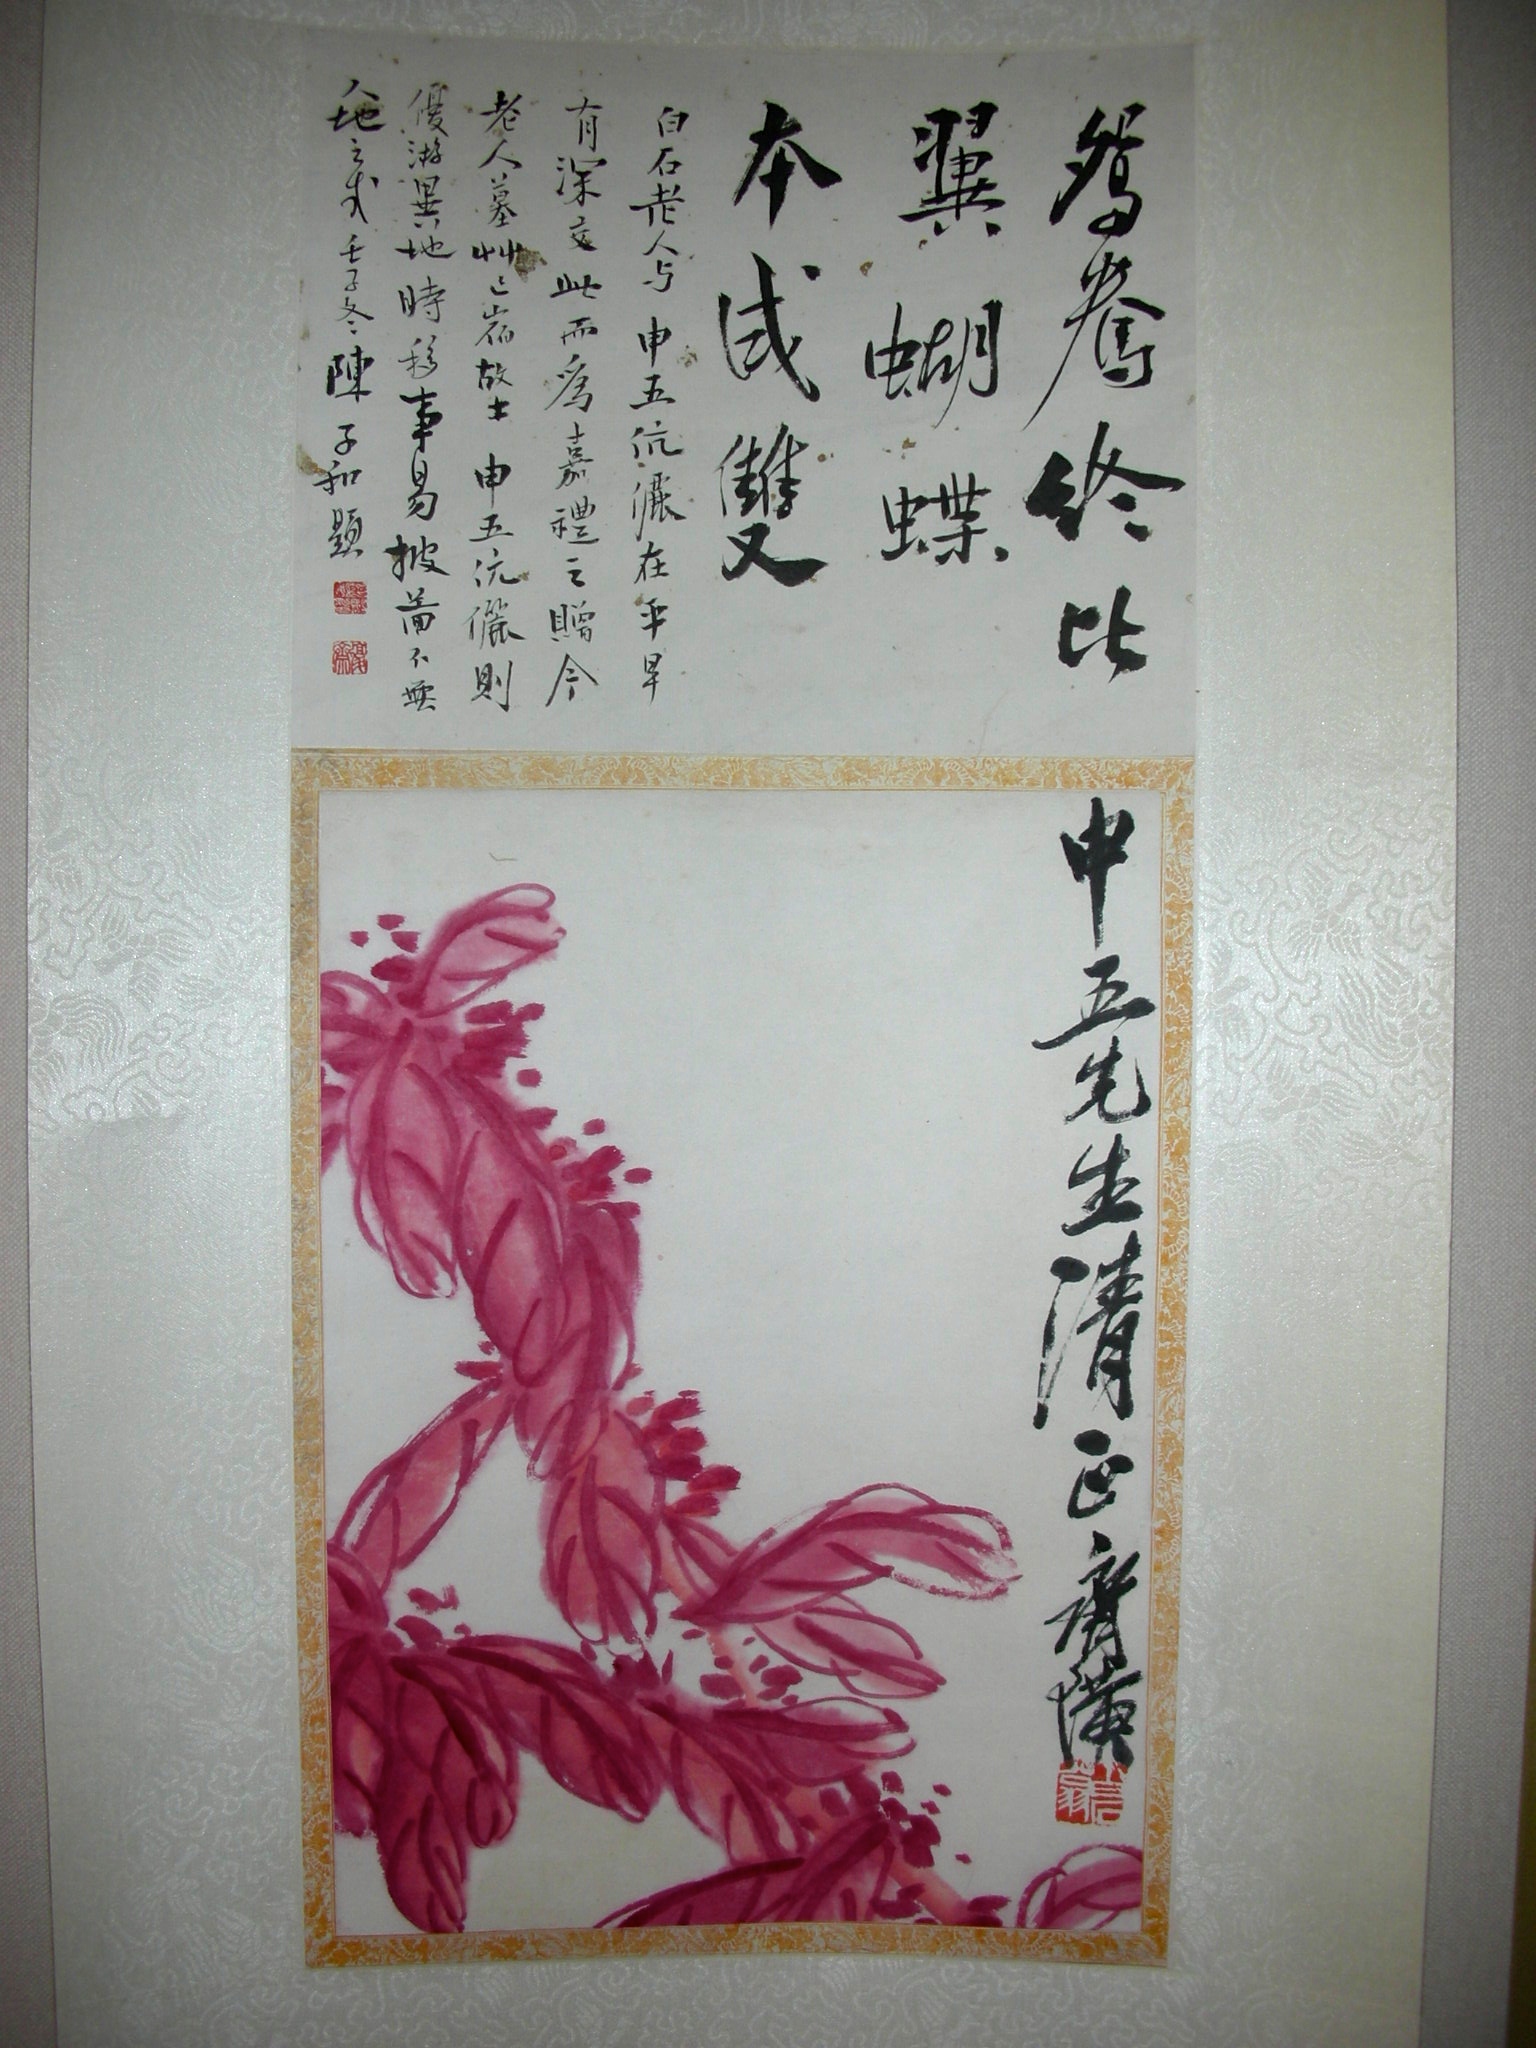 鴛鴦終比
翼蝴蝶
本成雙
白石老人与申五伉儷在平早
有深交此而為嘉禮之贈今
老人墓艸已宿故士申五伉儷則
優游異地時移事易披圖不無
人地之感壬子冬陳子和題
申五先生清正齊璜